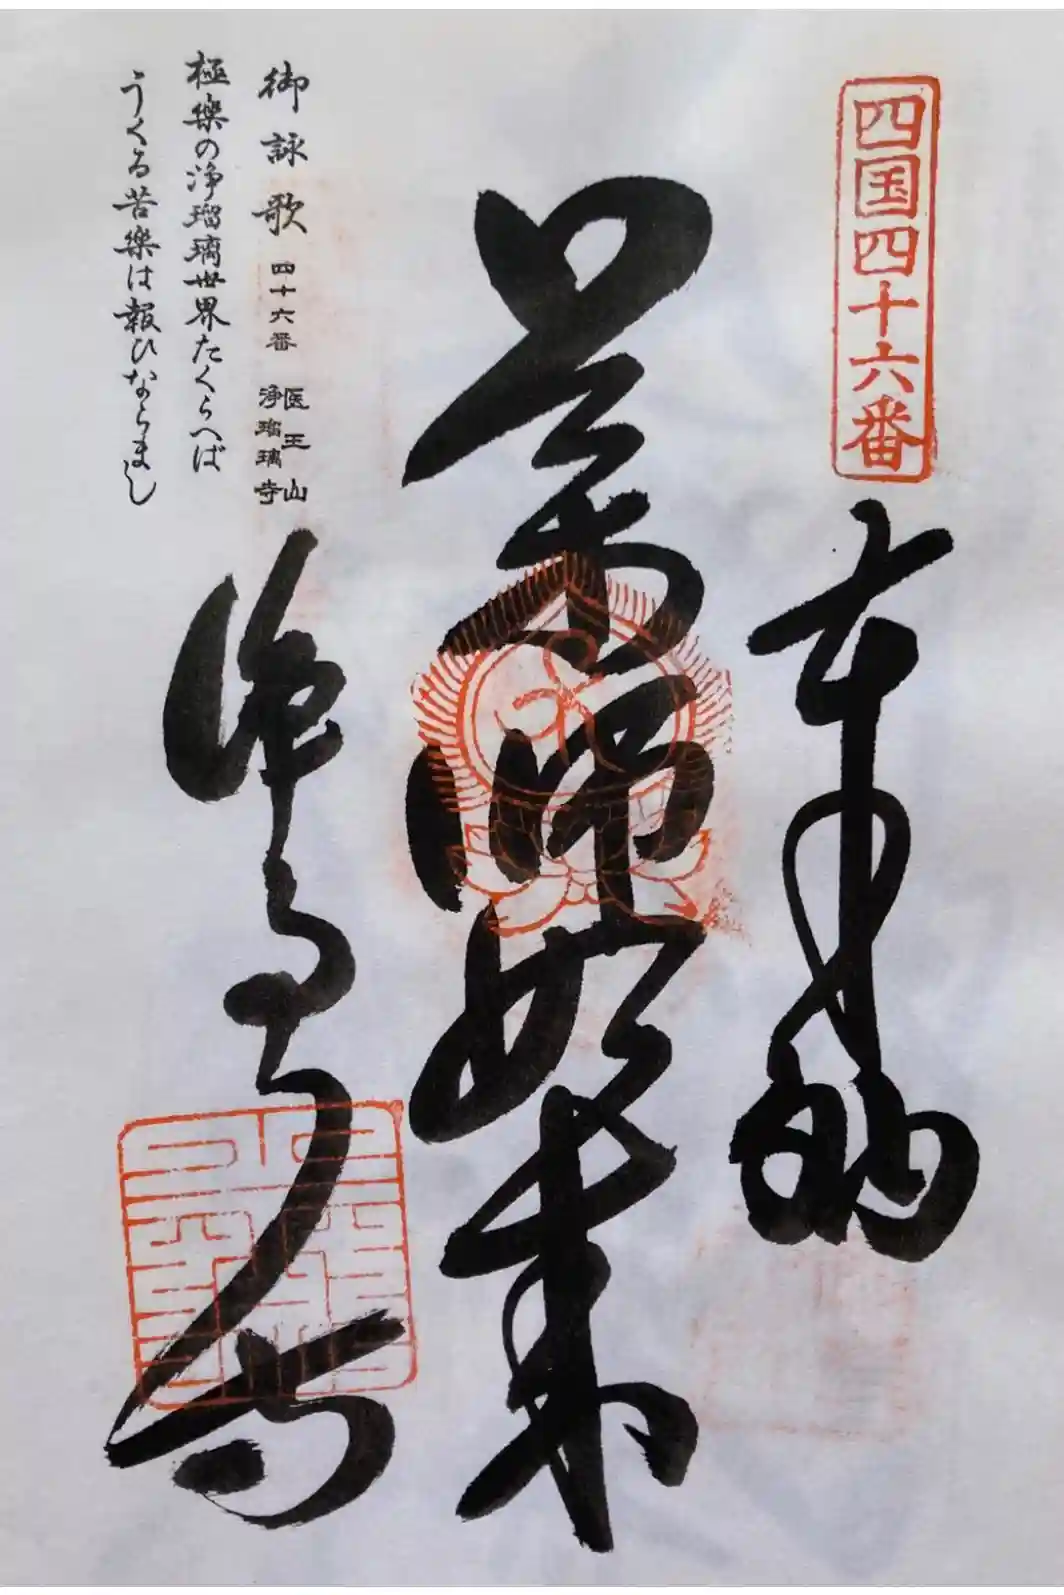 四国四十六番
奉納
薬師如来
浄瑠璃寺
御詠歌 四十六番 医王山 浄瑠璃寺
極楽の浄瑠璃世界たくらへば
うくる苦楽は報ひならまし